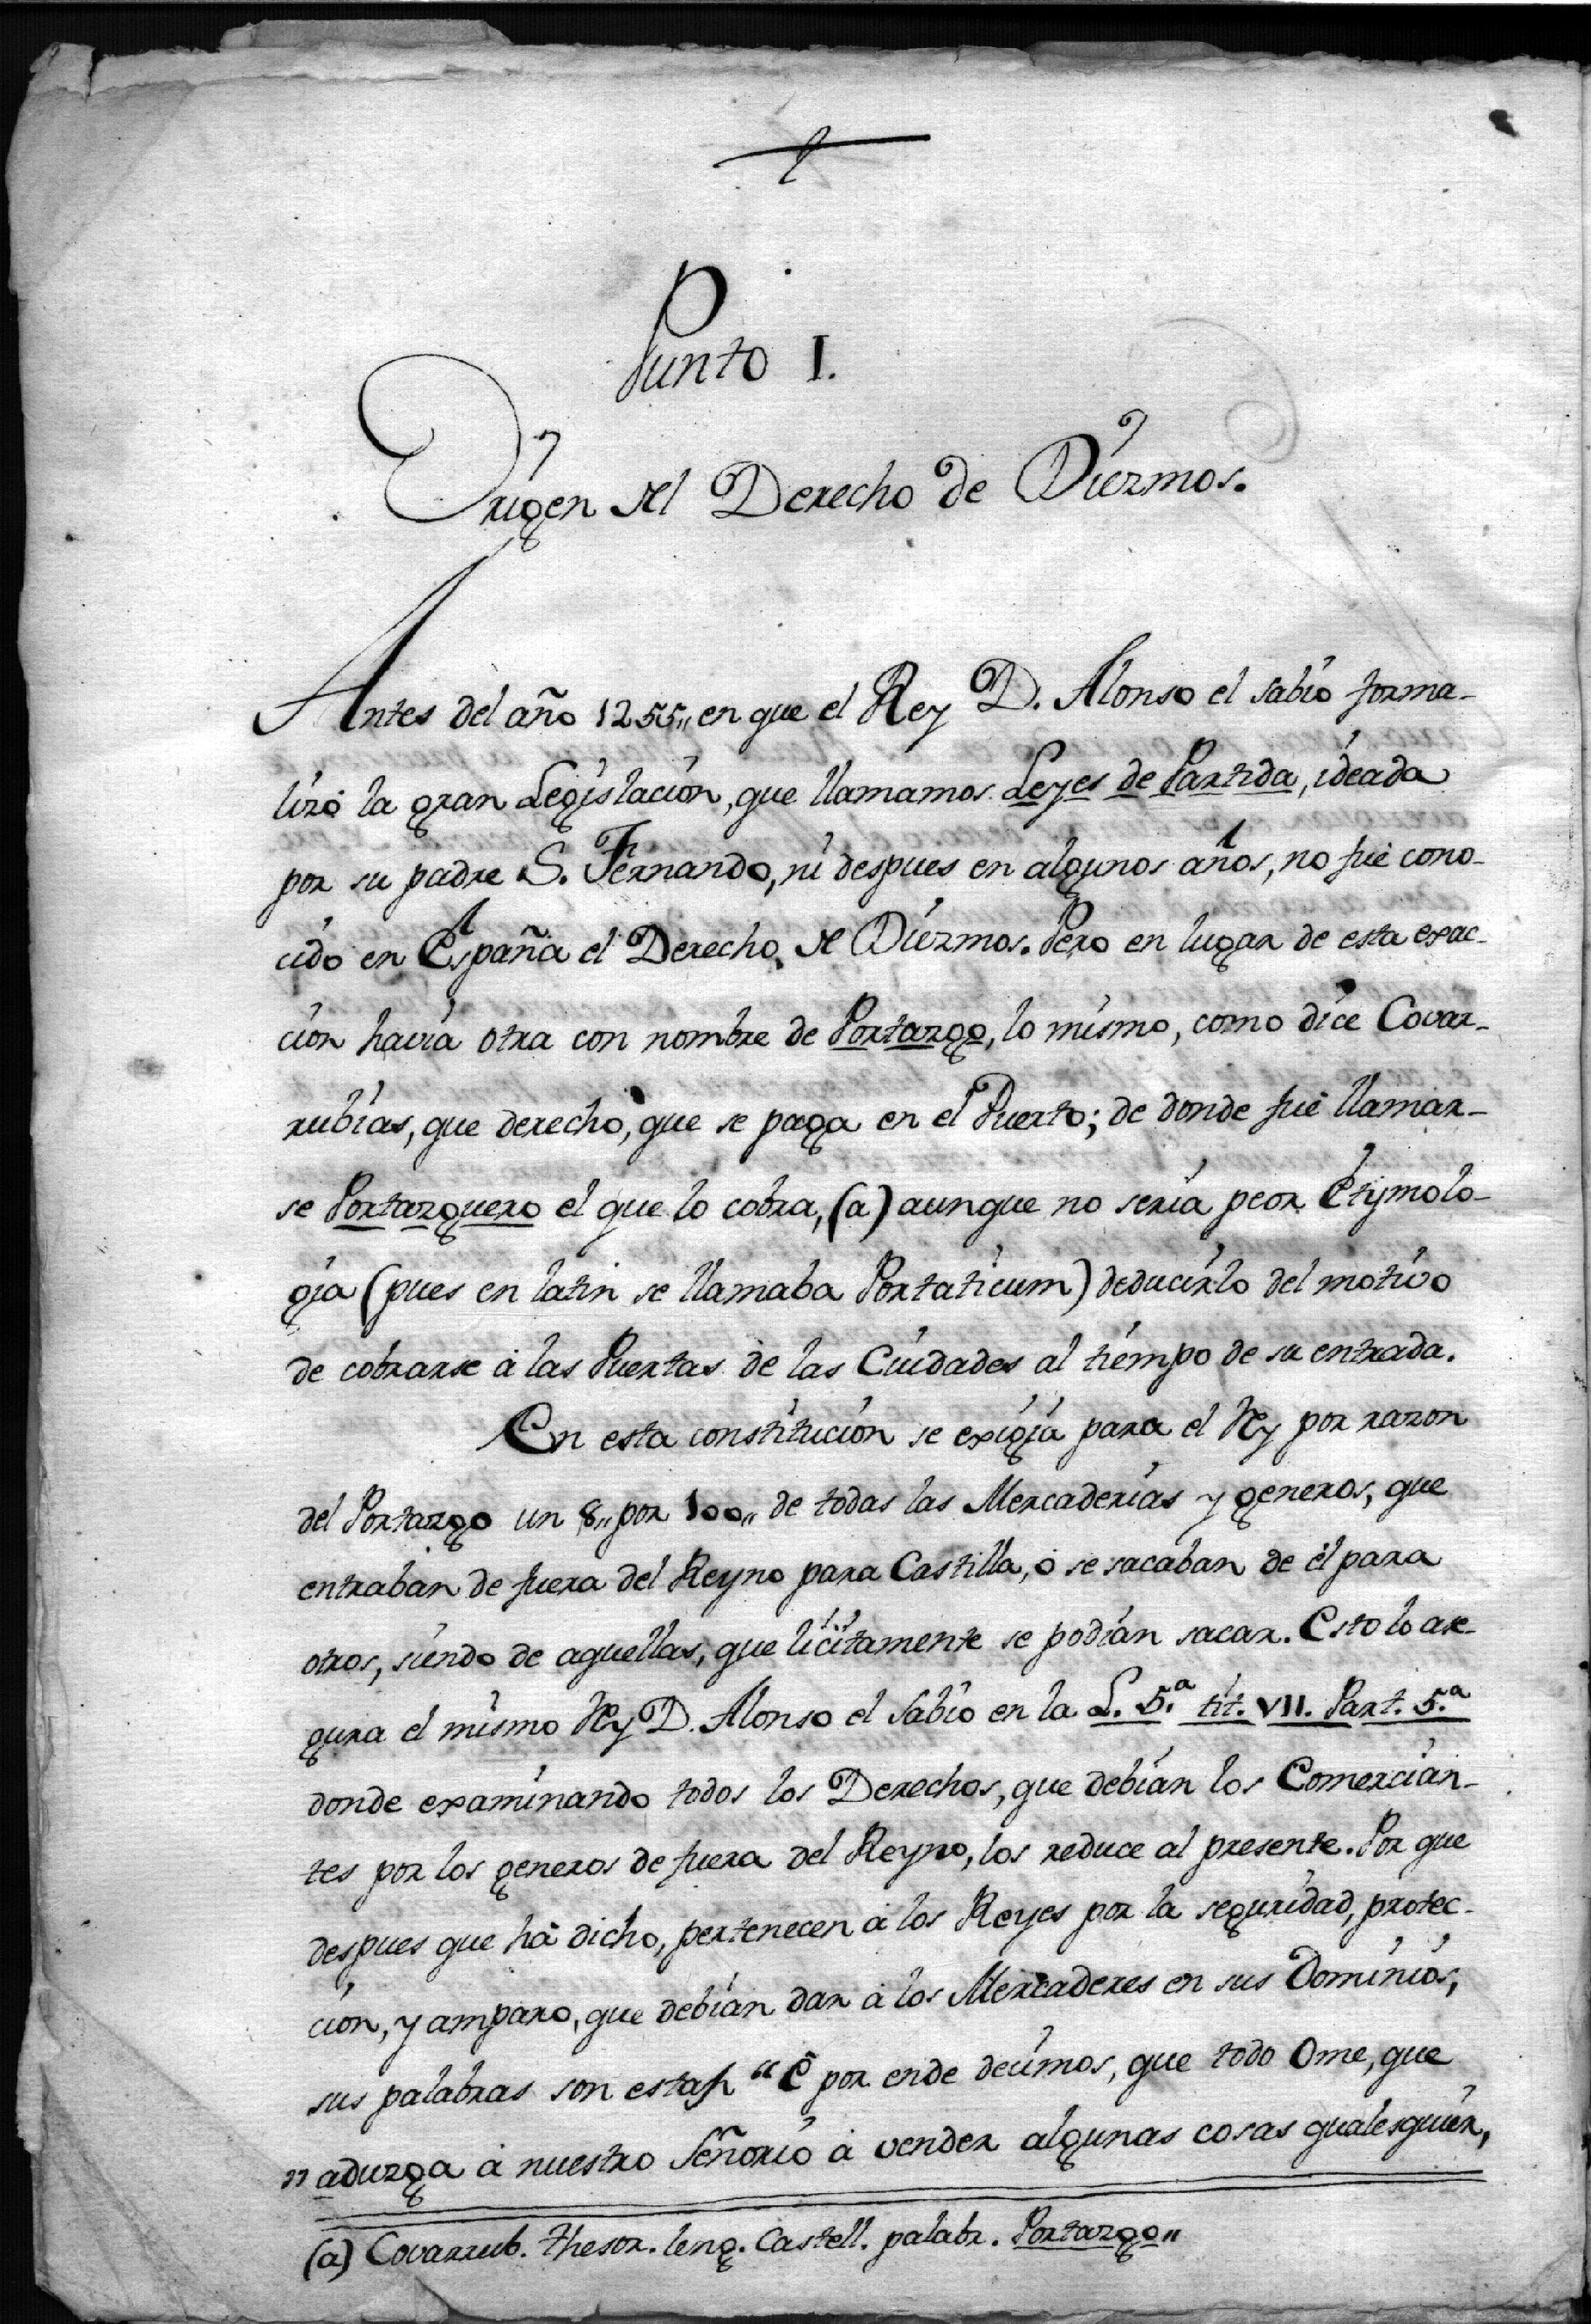 Punto I.
Origen del Derecho de Diezmos.
Antes del año 1255,, en que el Rey D. Alonso el Sabio forma-
lizó la gran Legislacion, que llamamos Leyes de Partida, ideada
por su padre S. Fernando, ni despues en algunos años, no fué cono-
cido en España el Derecho de Diezmos. Pero en lugar de esta exac-
cion havia otra con nombre de Portazgo, lo mismo, como dice Covar-
rubias, que derecho, que se paga en el Puerto; de donde fué llamar-
se Portazguero el que lo cobra, (a) aunque no seria peor Etymolo-
gia (pues en latin se llamaba Portaticum) deducirlo del motivo
de cobrarse à las Puertas de las Ciudades al tiempo de su entrada.
En esta constitucion se exigia para el Rey por razon
del Portazgo un 8,, por 100,, de todas las Mercaderias y generos, que
entraban de fuera del Reyno para Castilla, ó se sacaban de él para
otros, siendo de aquellas, que licitamente se podian sacar. Esto lo ase-
gura el mismo Rey D. Alonso el Sabio en la L. 5.ª tit. VII. Part. 5.ª
donde examinando todos los Derechos, que debian los Comercian-
tes por los generos de fuera del Reyno, los reduce al presente. Por que
despues que há dicho, pertenecen à los Reyes por la seguridad, protec-
cion, y amparo, que debian dar à los Mercaderes en sus Dominios,
sus palabras son estas “ É por ende decimos, que todo Ome, que
" aduzga à nuestro Señorio à vender algunas cosas qualesquier,
(a) Covarrub. thesor. leng. Castell. palabr. Portazgo,,